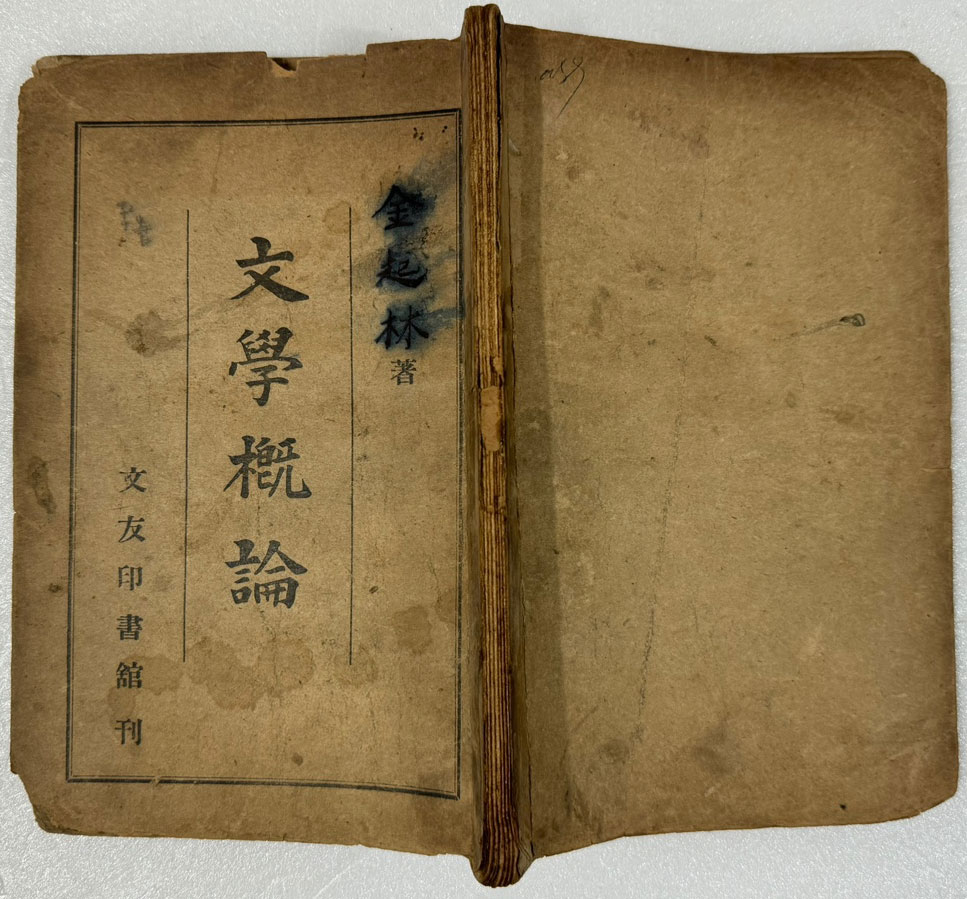 金起林著
文學概論
文友印書舘刊